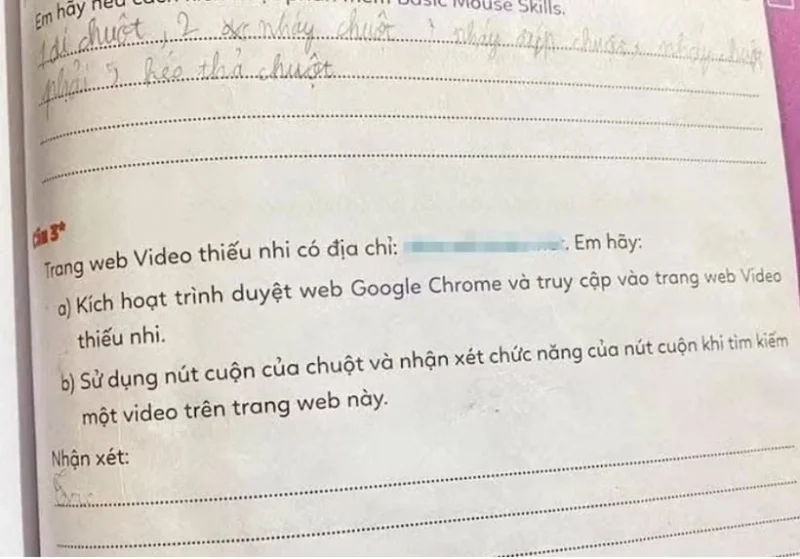 Em hãy nêu các Basic Mouse Skills.
chuột, 2 nháy chuột, nháy chuột, nháy chuột
phải 5 kéo thả chuột
Câu 3*
Trang web Video thiếu nhi có địa chỉ: . Em hãy:
a) Kích hoạt trình duyệt web Google Chrome và truy cập vào trang web Video
thiếu nhi.
b) Sử dụng nút cuộn của chuột và nhận xét chức năng của nút cuộn khi tìm kiếm
một video trên trang web này.
Nhận xét: